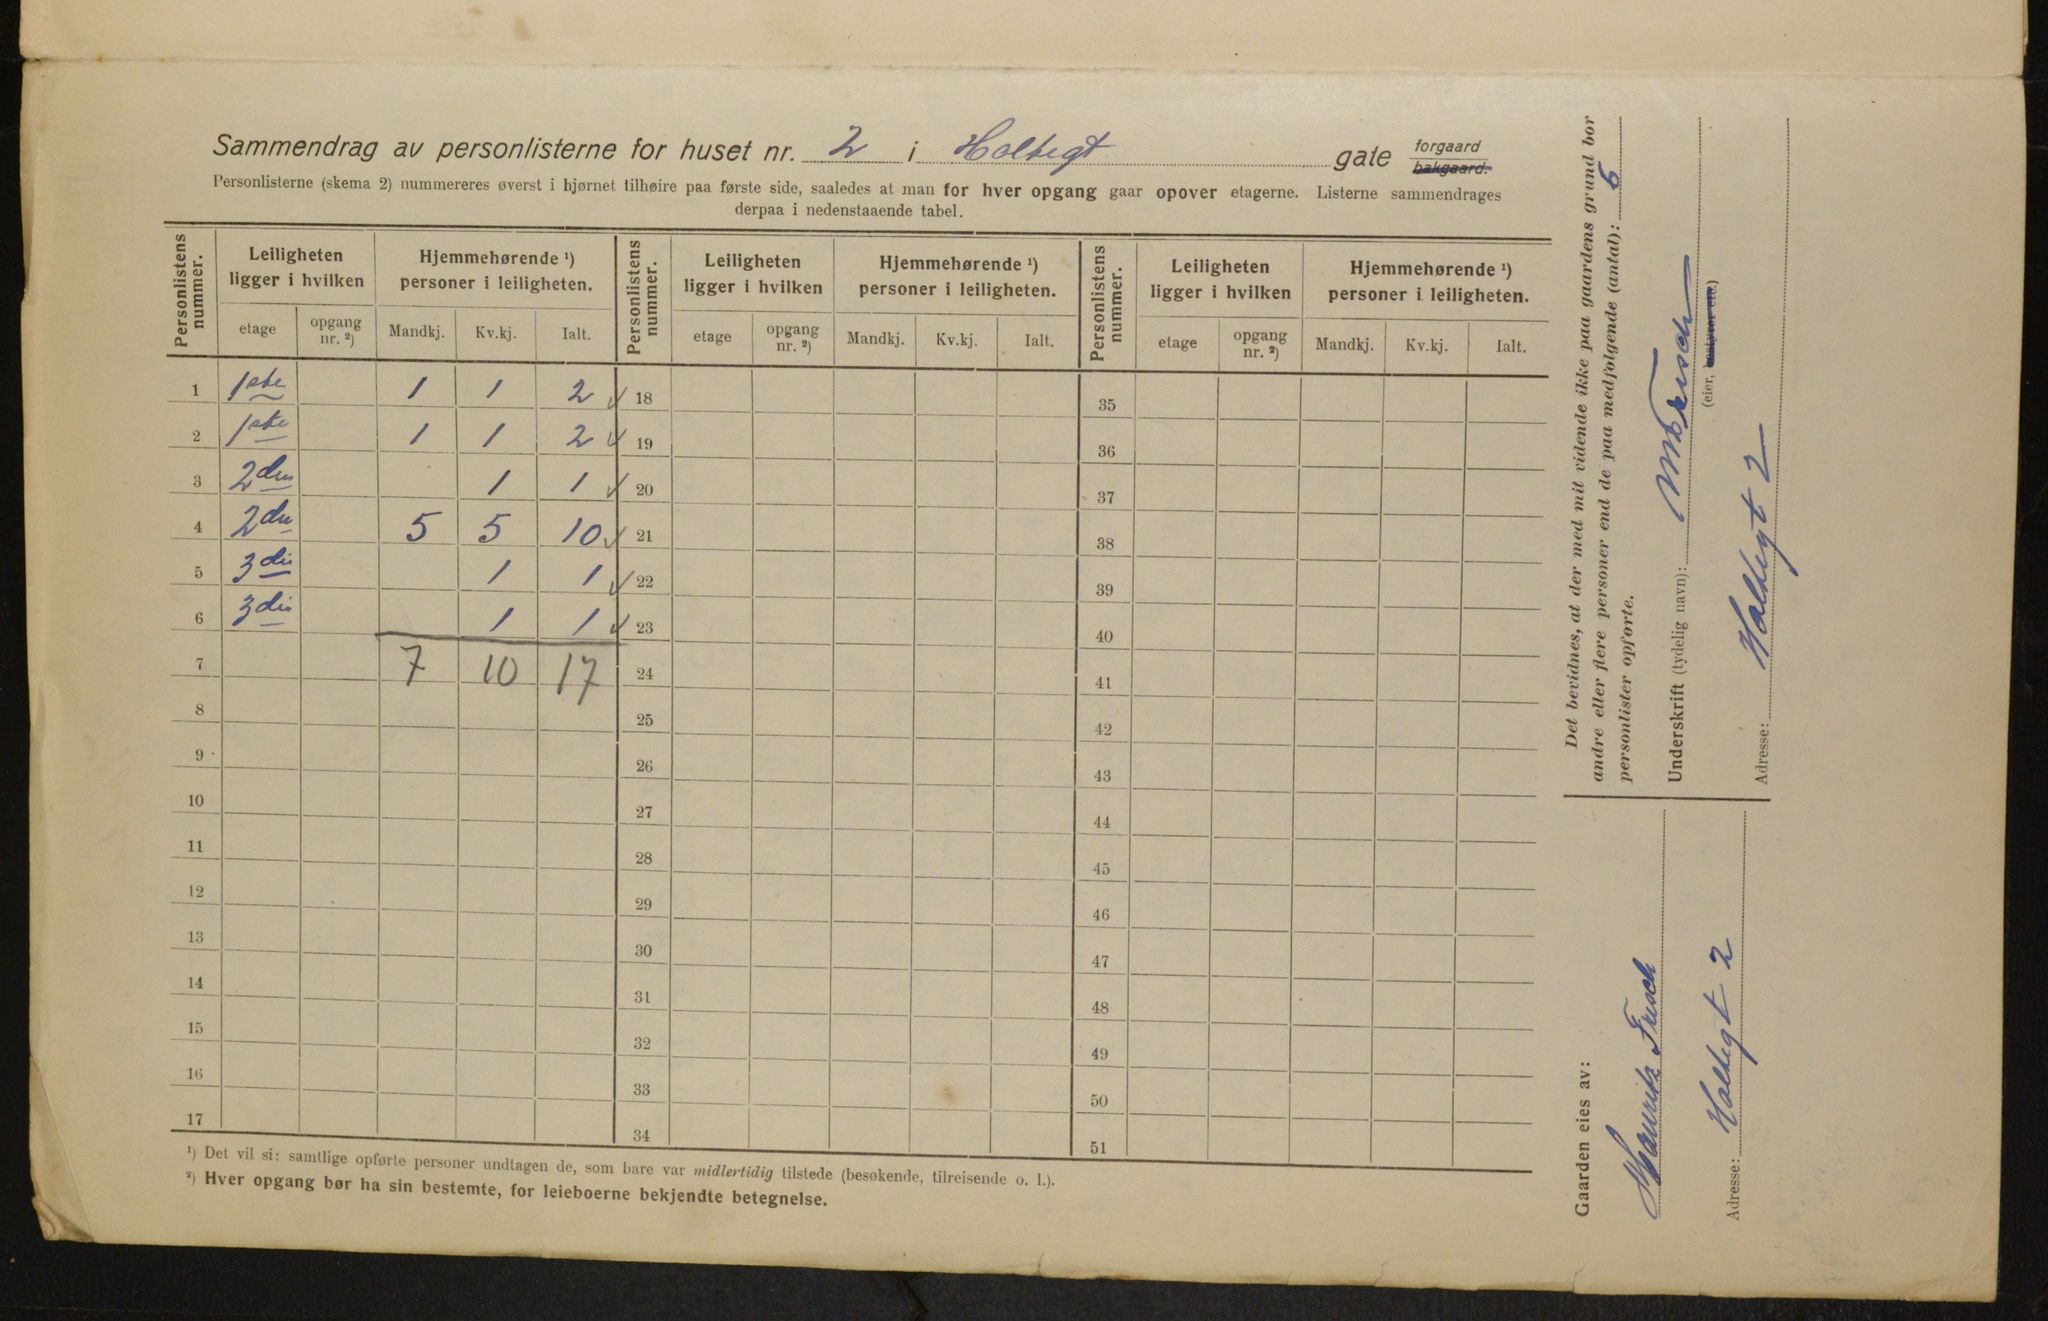 Sammendrag av personlisterne for huset nr. 2 i Holtegt gate forgaard bakgaard.
Personlisterne (skema 2) nummereres øverst i hjørnet tilhøire paa første side, saaledes at man for hver opgang gaar opover etagerne. Listerne sammendrages
derpaa i nedenstaaende tabel.
Personlistens nummer. Leiligheten ligger i hvilken Hjemmehørende ¹) personer i leiligheten. Personlistens nummer. Leiligheten ligger i hvilken Hjemmehørende ¹) personer i leiligheten. Personlistens nummer. Leiligheten ligger i hvilken Hjemmehørende ¹) personer i leiligheten.
etage opgang nr. ²) Mandkj. Kv.kj. Ialt. etage opgang nr. ²) Mandkj. Kv.kj. Ialt. etage opgang nr. ²) Mandkj. Kv.kj. Ialt.
1 1ste 1 1 2 ✓ 18 35
2 1ste 1 1 2 ✓ 19 36
3 2den 1 1 ✓ 20 37
4 2den 5 5 10 ✓ 21 38
5 3die 1 1 ✓ 22 39
6 3die 1 1 ✓ 23 40
7 7 10 17 24 41
8 25 42
9 26 43
10 27 44
11 28 45
12 29 46
13 30 47
14 31 48
15 32 49
16 33 50
17 34 51
¹) Det vil si: samtlige opførte personer undtagen de, som bare var midlertidig tilstede (besøkende, tilreisende o. l.).
²) Hver opgang bør ha sin bestemte, for leieboerne bekjendte betegnelse.
Det bevidnes, at der med mit vidende ikke paa gaardens grund bor
andre eller flere personer end de paa medfølgende (antal): 6
personlister opførte.
Underskrift (tydelig navn): M Frisch
(eier, bestyrer etc.)
Adresse: Holtegt 2
Gaarden eies av:
Mauritz Frisch
Adresse: Holtegt 2